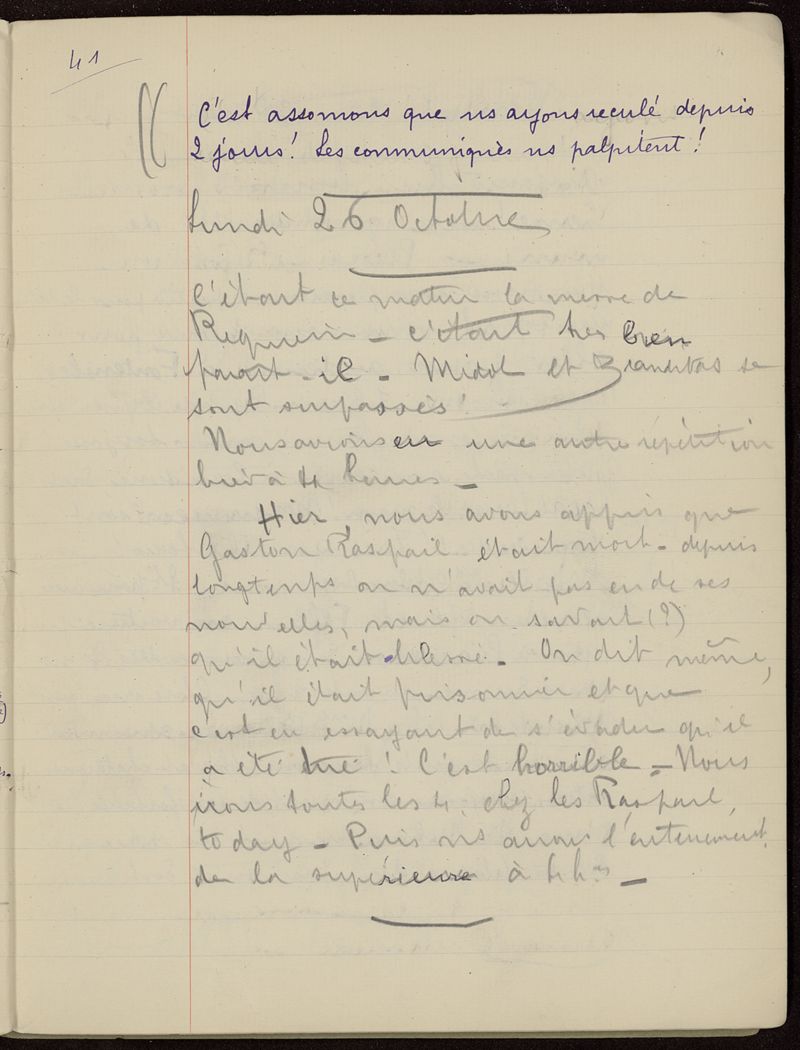 41
C'est assomons que ns ayons reculé depuis
2 jours! Les communiqués ns palpitent!
Lundi 26 Octobre
C'était ce matin la messe de
Requiem - c'était très bien
parait-il - Midol et se
sont surpassés!
Nous avions eu une autre répétition
hier à 4 heures -
Hier, nous avons appris que
Gaston Raspail était mort - depuis
longtemps on n'avait pas eu de ses
nouvelles, mais on savait (?)
qu'il était blessé - On dit même,
qu'il était prisonnier et que
c'est en essayant de s'évader qu'il
a été tué! C'est horrible - Nous
irons toutes les 4, chez les Raspail,
today - Puis ns avons l'enterrement
de la supérieure à 4 hes -